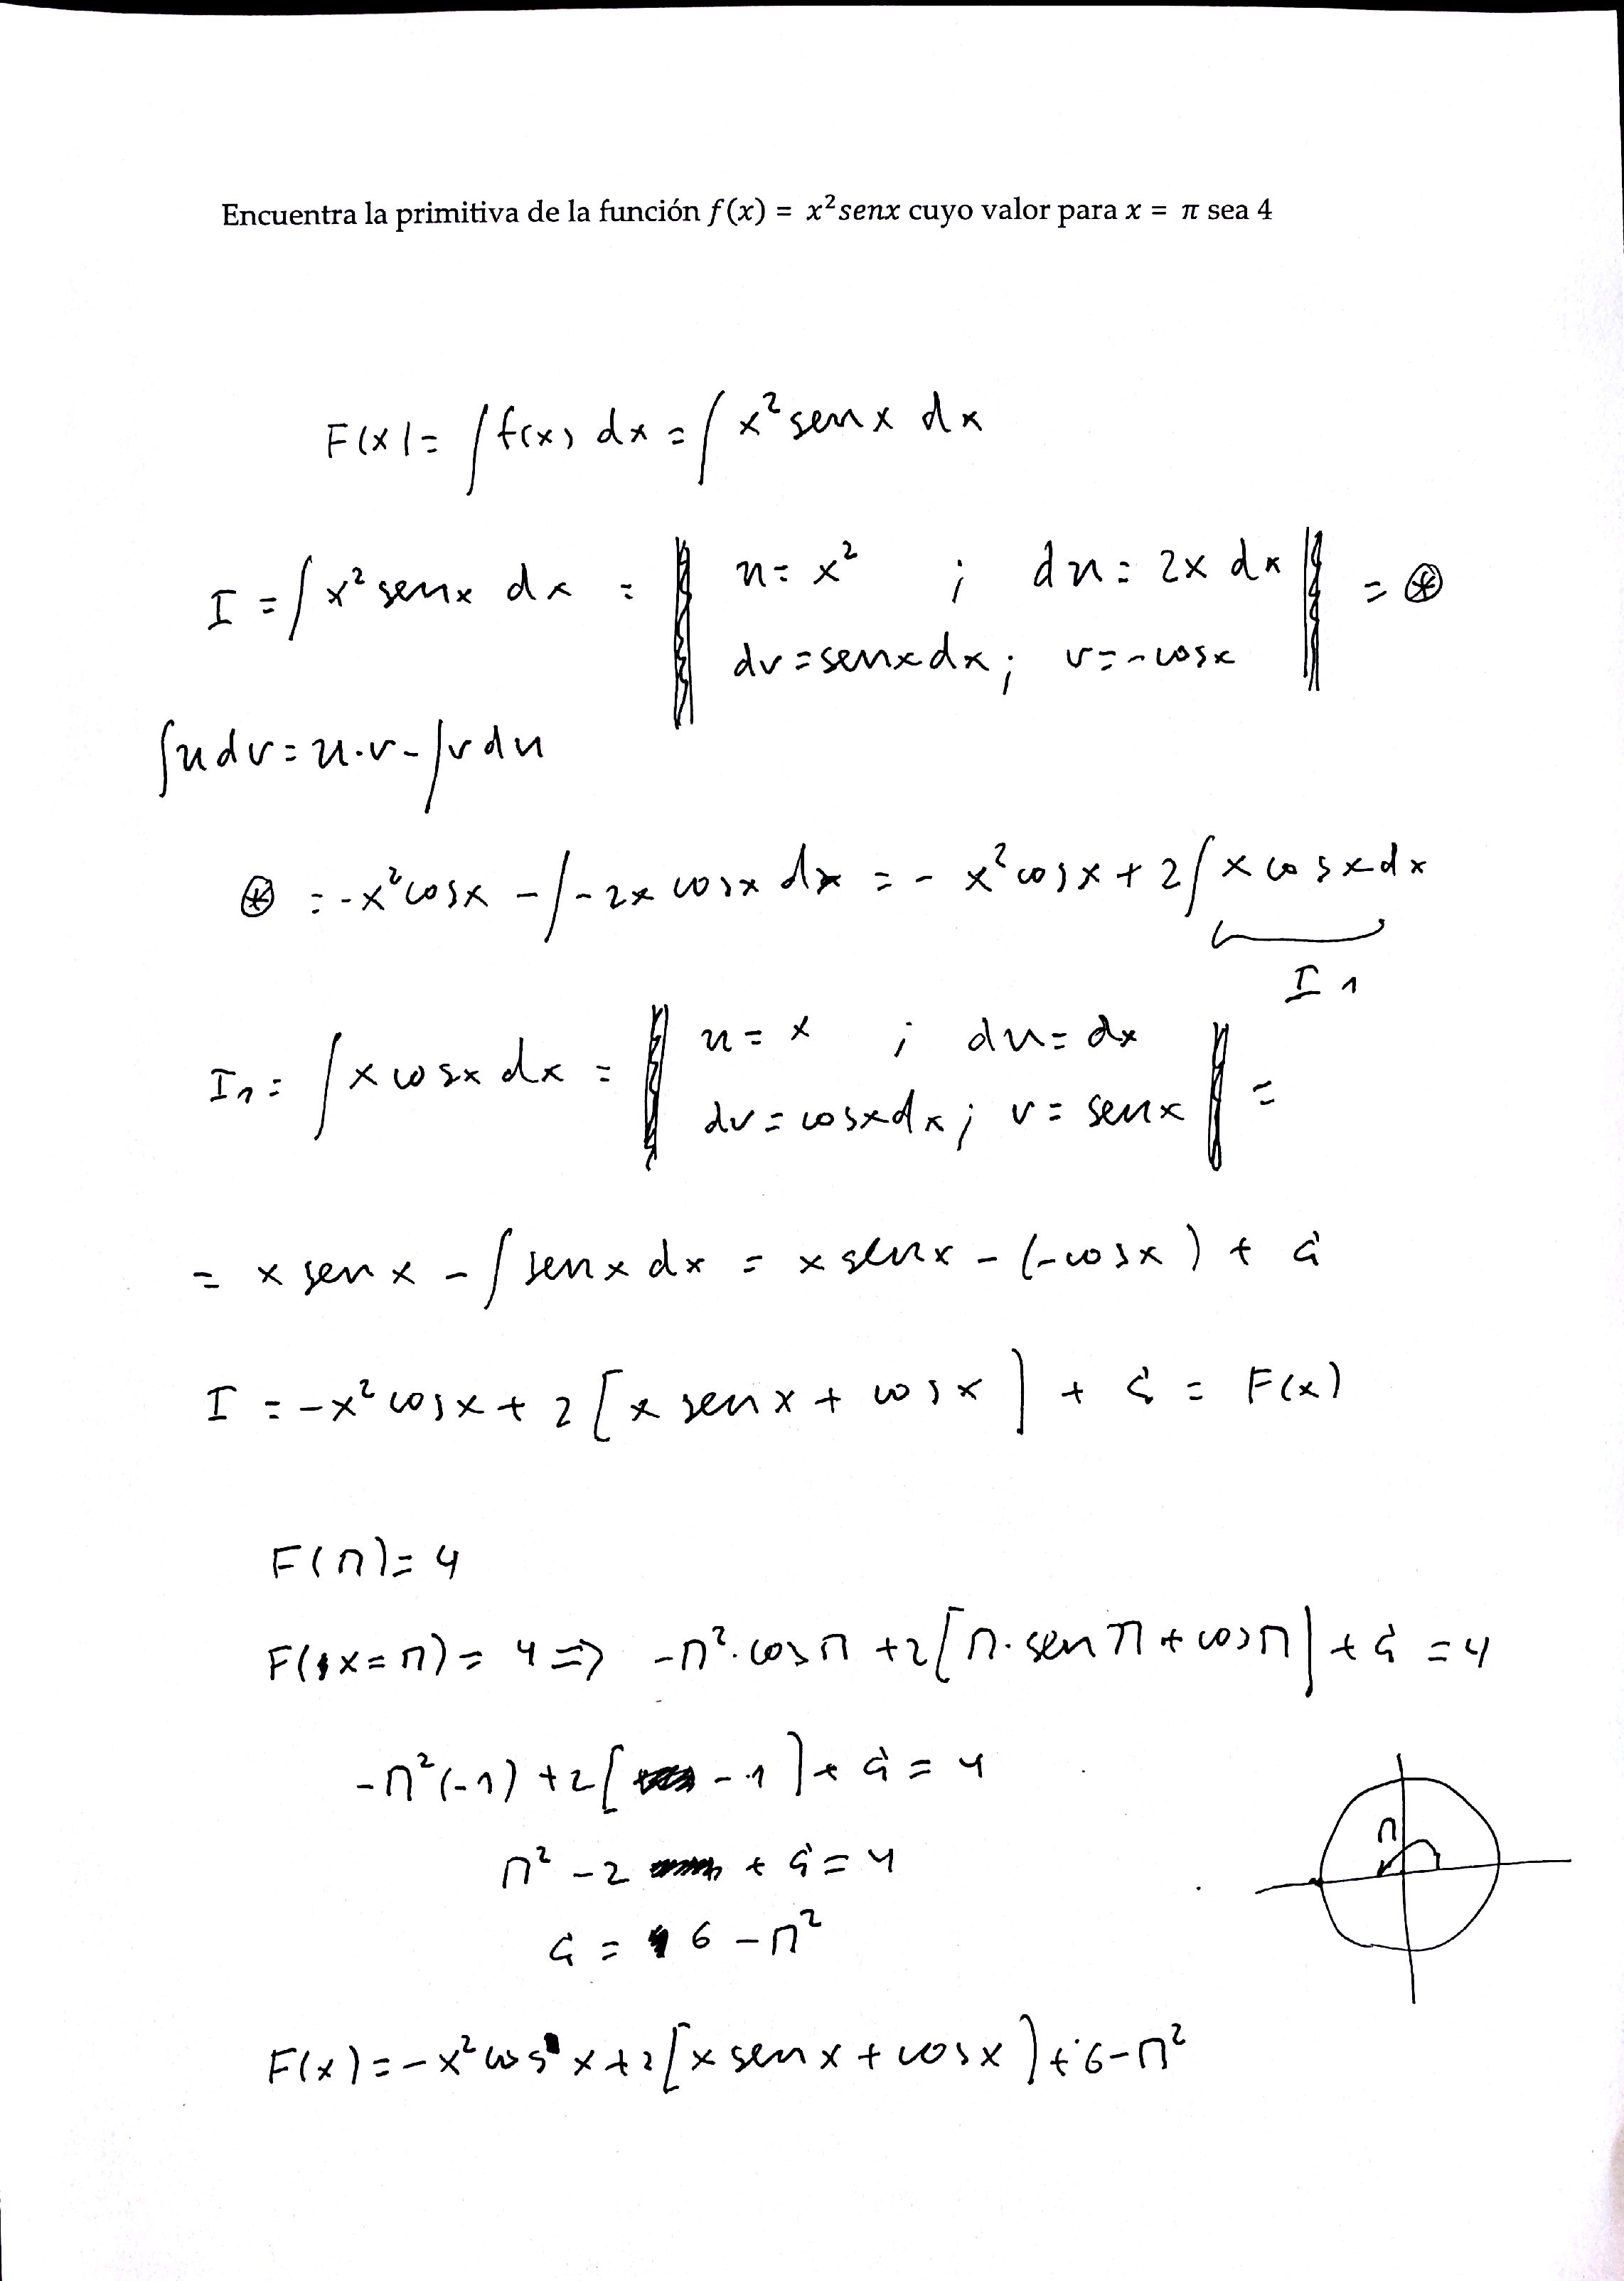 Encuentra la primitiva de la función f(x) = x²senx cuyo valor para x = π sea 4
F(x) = ∫f(x) dx = ∫x² senx dx
I = ∫x² senx dx = || u = x² ; du = 2x dx || = ⊛
dv = senx dx ; v = -cosx
∫u dv = u·v - ∫v du
⊛ = -x² cosx - ∫-2x cosx dx = -x² cosx + 2∫x cosx dx
I1
I1 = ∫x cosx dx = || u = x ; du = dx || =
dv = cosx dx ; v = senx
= x senx - ∫senx dx = x senx - (-cosx) + G
I = -x² cosx + 2[x senx + cosx] + G = F(x)
F(π) = 4
F(x=π) = 4 => -π²·cosπ + 2[π·senπ + cosπ] + G = 4
-π²(-1) + 2[-1] + G = 4
π² - 2 + G = 4
π
G = 6 - π²
F(x) = -x² cos x + 2[x senx + cosx] + 6 - π²